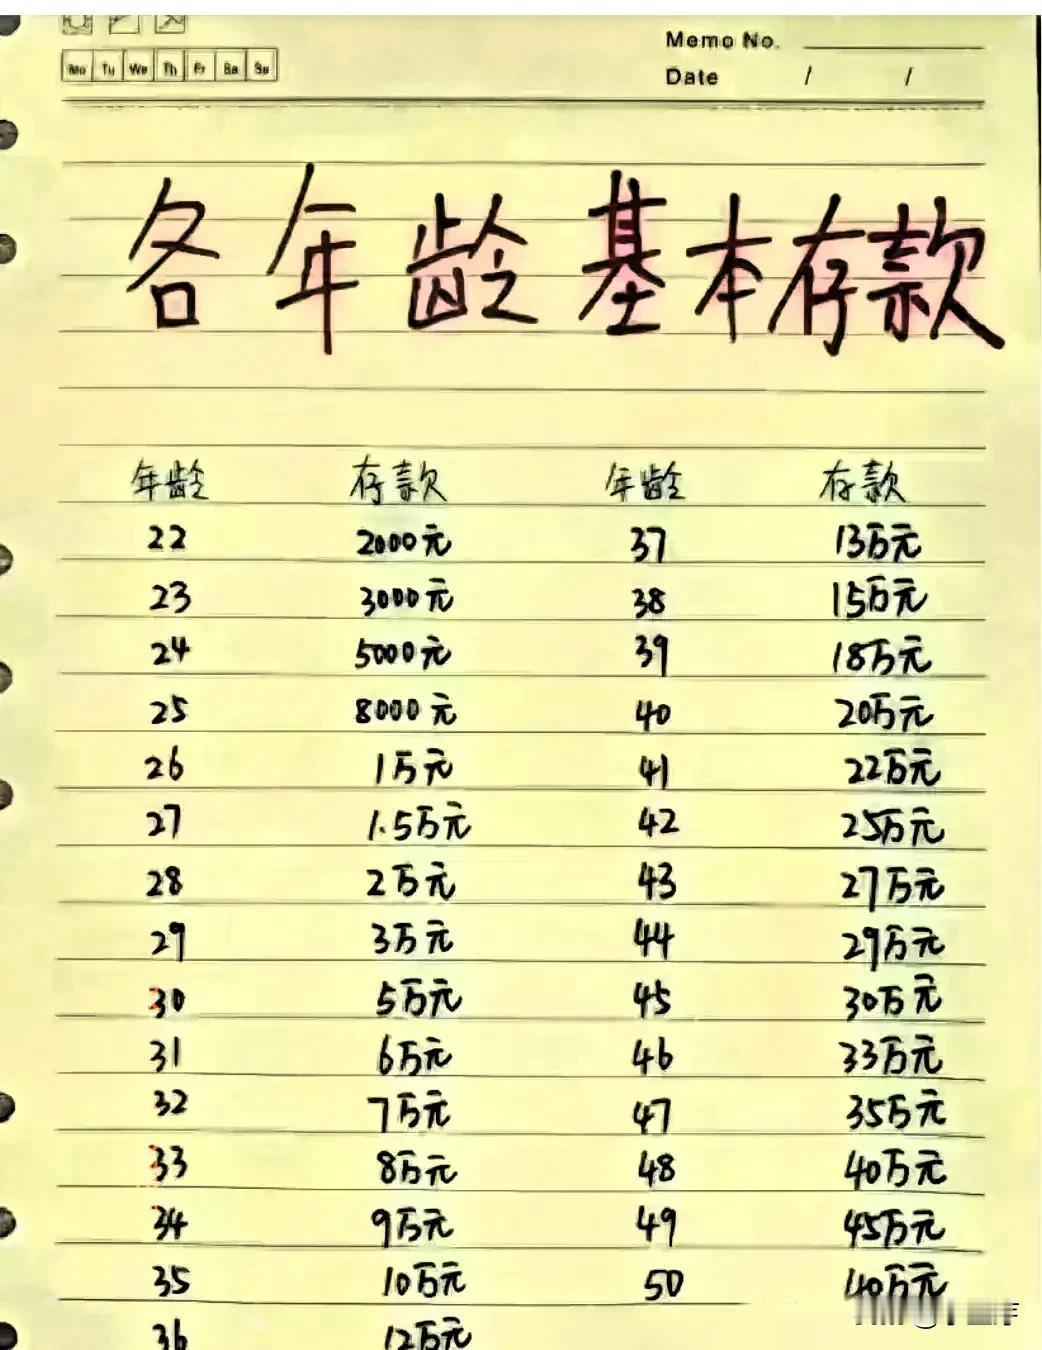 Memo No.
Mo Tu We Th Fr Sa Su
Date / /
各年龄基本存款
年龄 存款 年龄 存款
22 2000元 37 13万元
23 3000元 38 15万元
24 5000元 39 18万元
25 8000元 40 20万元
26 1万元 41 22万元
27 1.5万元 42 25万元
28 2万元 43 27万元
29 3万元 44 29万元
30 5万元 45 30万元
31 6万元 46 33万元
32 7万元 47 35万元
33 8万元 48 40万元
34 9万元 49 45万元
35 10万元 50 40万元
36 12万元